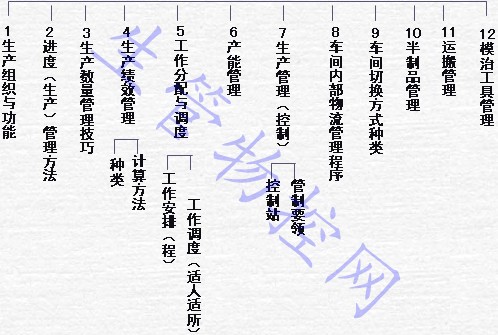 1生产组织与功能
2进度（生产）管理方法
3生产数量管理技巧
4生产绩效管理
种类
计算方法
5工作分配与调度
工作安排（程）
工作调度（适人适所）
6产能管理
7生产管理（控制）
控制站
管制要领
8车间内部物流管理程序
9车间切换方式种类
10半制品管理
11运搬管理
12模治工具管理
生管物控网